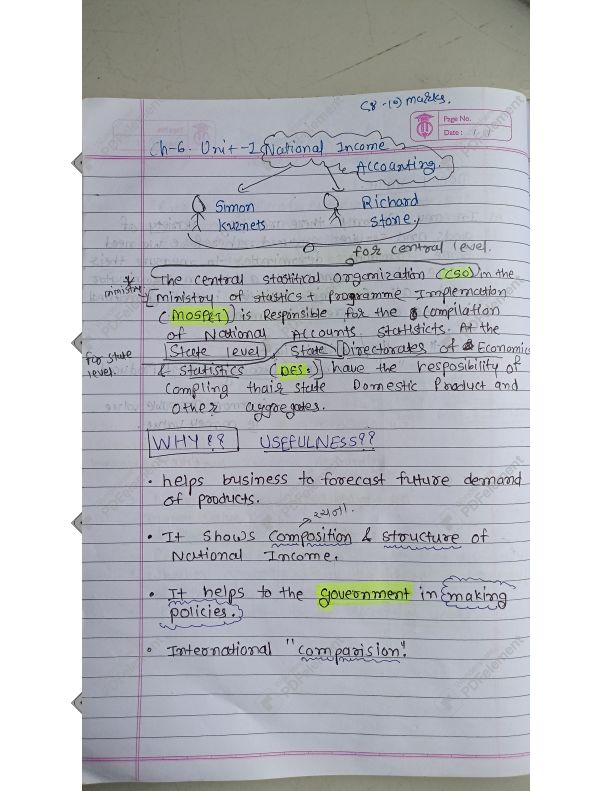 (8-10) marks.
Page No.
Date:
Ch-6. Unit-I National Income
Accounting.
Simon Richard
kuznets Stone.
for central level.
The central stastitical organization (CSO) in the
ministry
[ministry of stastics + programme Implemcation
(MOSP&I) is Responsible for the compilation
of National Accounts Statisticts. At the
for state
level.
State level, State [Directorates of Economic
& Statistics (DES.)] have the resposibility of
compling thair state Domestic Product and
other aggregates.
WHY?? USEFULNESS??
• helps business to forecast future demand
of products.
રચના.
• It shows composition & structure of
National Income.
• It helps to the government in making
policies.
• International "comparision".
PDFelement